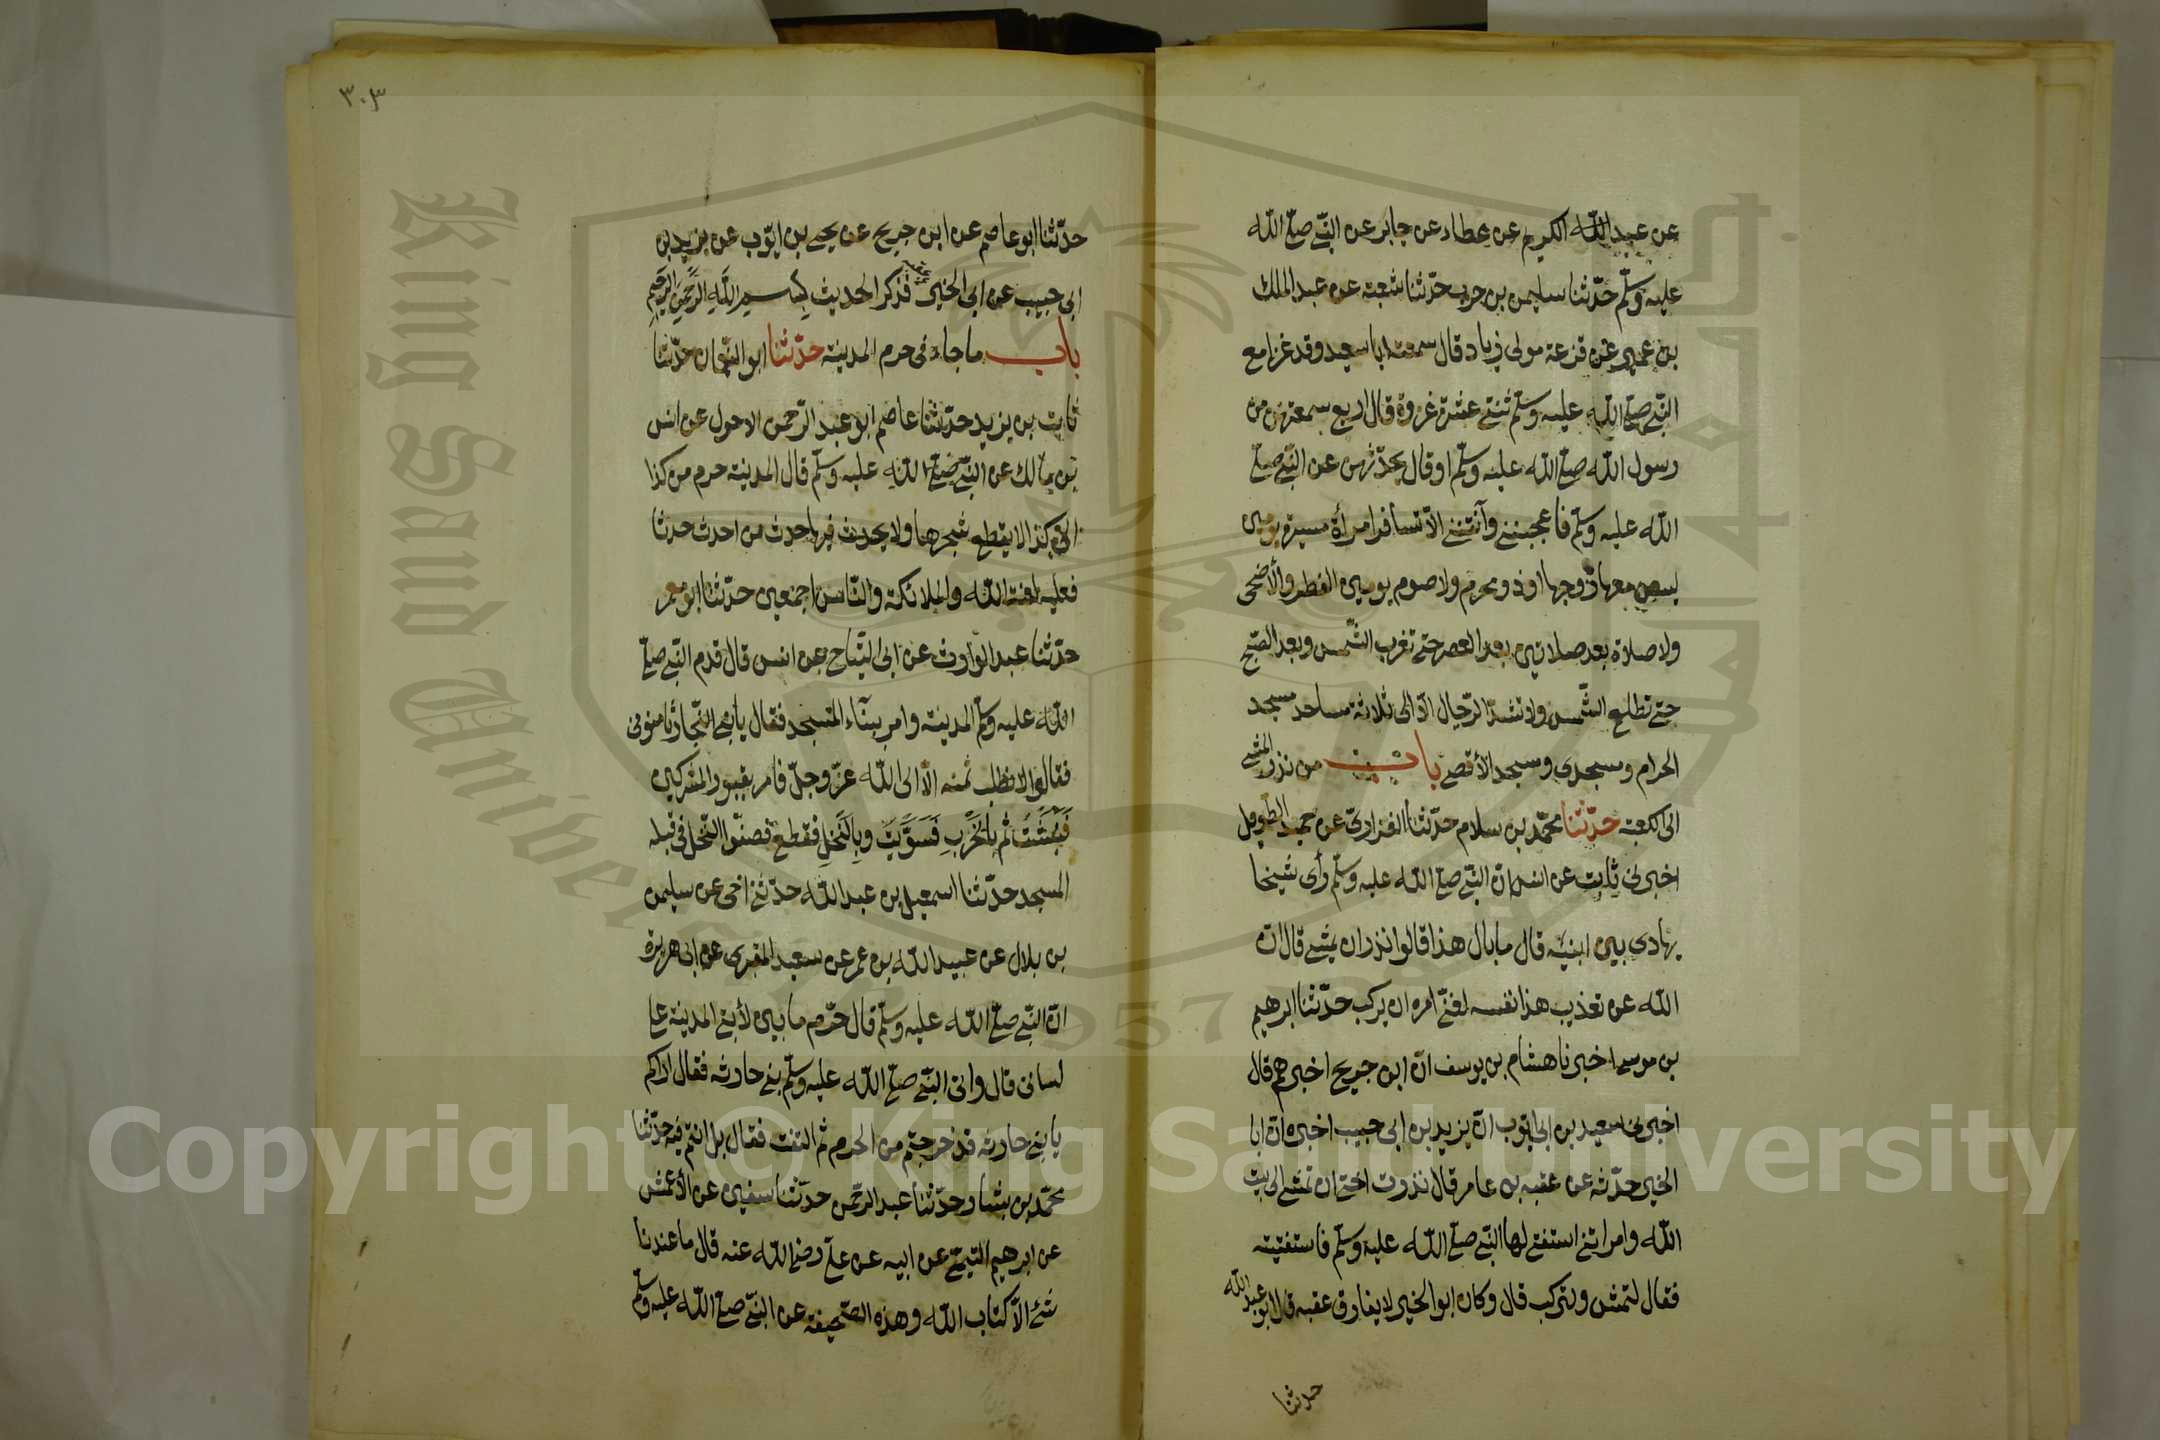 عن عبد الله الكريم عن عطاء عن جابر عن النبي صلى الله
عليه وسلم حدثنا سليمن بن حرب حدثنا شعبة عن عبد الملك
بن عمير عن قزعة مولى زياد قال سمعت ابا سعيد وقد غزا مع
النبي صلى الله عليه وسلم ثنتي عشرة غزوة قال اربع سمعتهن من
رسول الله صلى الله عليه وسلم او قال يحدثهن عن النبي صلى
الله عليه وسلم فاعجبنني وآنقنني الا تسافر امرأة مسيرة يومين
ليس معها زوجها او ذو محرم ولا صوم يومين الفطر والأضحى
ولا صلاة بعد صلاتين بعد العصر حتى تغرب الشمس وبعد الصبح
حتى تطلع الشمس ولا تشد الرحال الا الى ثلاثة مساجد مسجد
الحرام ومسجدي ومسجد الأقصى باب من نذر المشي
الى الكعبة حدثنا محمد بن سلام حدثنا الفزاري عن حميد الطويل
اخبرني ثابت عن انس ان النبي صلى الله عليه وسلم رأى شيخا
يهادى بين ابنيه قال ما بال هذا قالوا نذر ان يمشي قال ان
الله عن تعذيب هذا نفسه لغني امره ان يركب حدثنا ابرهيم
بن موسى اخبرنا هشام بن يوسف ان ابن جريج اخبرهم قال
اخبرني سعيد بن ابي ايوب ان يزيد بن ابي حبيب اخبره ان ابا
الخير حدثه عن عقبه بن عامر قال نذرت اختي ان تمشي الى بيت
الله وامرتني استفتي لها النبي صلى الله عليه وسلم فاستفتيته
فقال لتمش ولتركب قال وكان ابو الخير لا يفارق عقبه قال ابو عبد الله
حدثنا
٣٠٣
حدثنا ابو عاصم عن ابن جريج عن يحيى بن ايوب عن يزيد بن
ابي حبيب عن ابي الخير فذكر الحديث بسم الله الرحمن الرحيم
باب ما جاء في حرم المدينة حدثنا ابو النعمان حدثنا
ثابت بن يزيد حدثنا عاصم ابو عبد الرحمن الاحول عن انس
بن مالك عن النبي صلى الله عليه وسلم قال المدينة حرم من كذا
الى كذا لا يقطع شجرها ولا يحدث فيها حدث من احدث حدثا
فعليه لعنة الله والملائكة والناس اجمعين حدثنا ابو معمر
حدثنا عبد الوارث عن ابي التياح عن انس قال قدم النبي صلى
الله عليه وسلم المدينة وامر ببناء المسجد فقال يا بني النجار ثامنوني
فقالوا لا نطلب ثمنه الا الى الله عز وجل فامر بقبور المشركين
فَنُبِشَتْ ثم بِالْخَرِبِ فَسُوِّيَتْ وبِالنَّخْلِ فقطع فصفوا النخل في قبلة
المسجد حدثنا اسمعيل بن عبد الله حدثني اخي عن سليمن
بن بلال عن عبيد الله بن عمر عن سعيد المقبري عن ابي هريرة
ان النبي صلى الله عليه وسلم قال حُرم ما بين لابتي المدينة على
لساني قال واتى النبي صلى الله عليه وسلم بني حارثه فقال اراكم
يا بني حارثه قد خرجتم من الحرم ثم التفت فقال بل انتم فيه حدثنا
محمد بن بشار حدثنا عبد الرحمن حدثنا سفين عن الأعمش
عن ابرهيم التيمي عن ابيه عن علي رضي الله عنه قال ما عندنا
شيء الا كتاب الله وهذه الصحيفة عن النبي صلى الله عليه وسلم
King Saud University
1957
Copyright © King Saud University